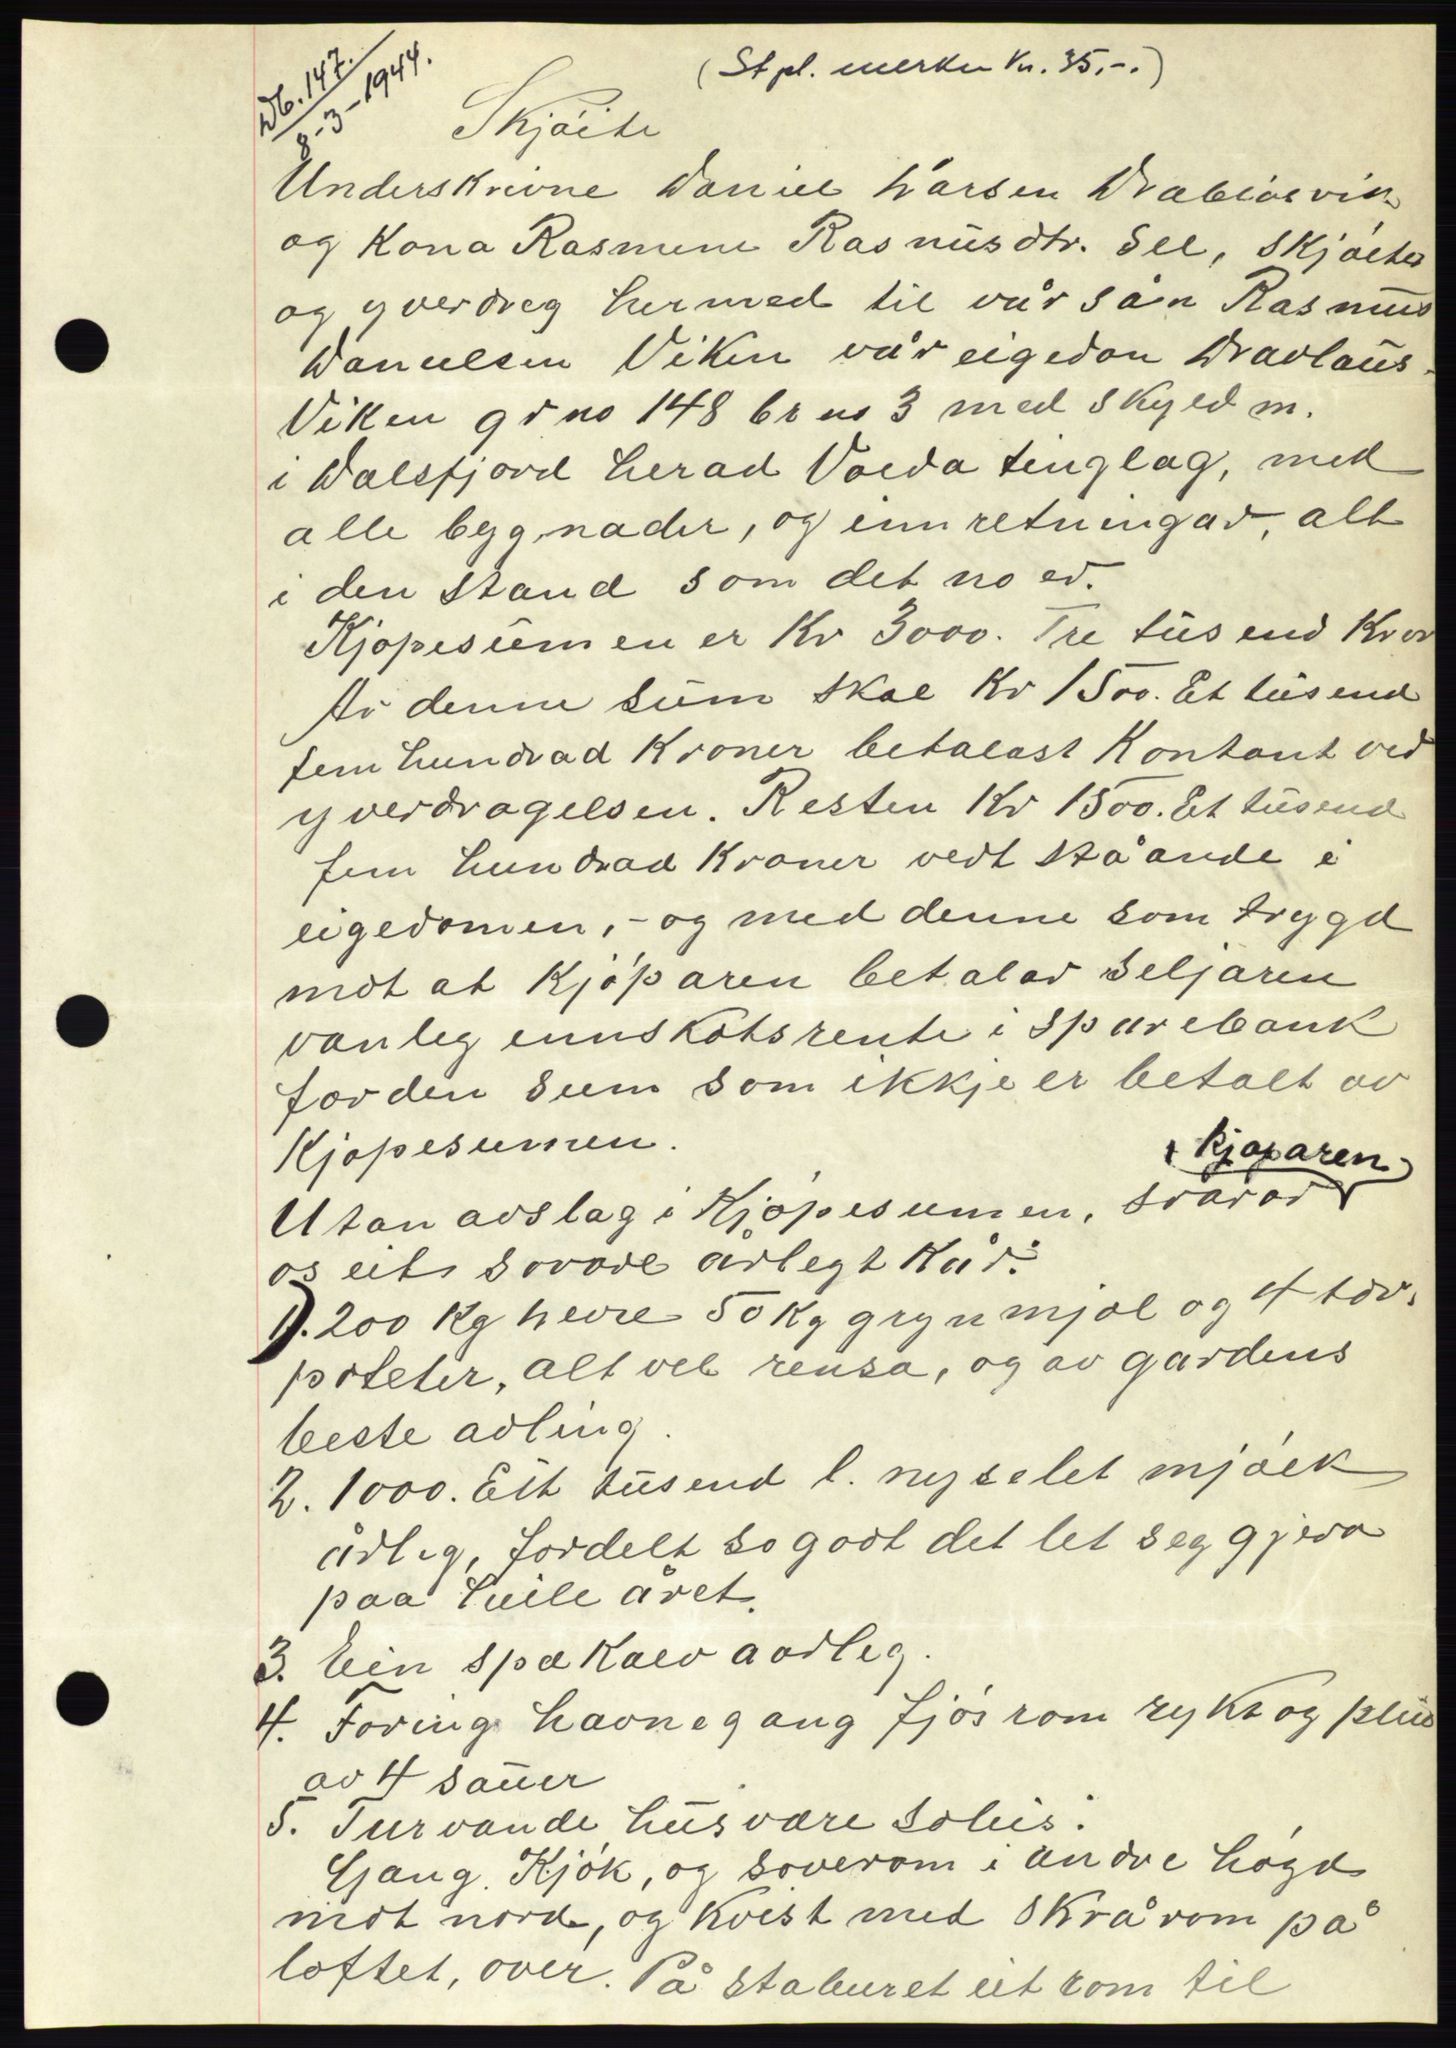 Db. 147.
8-3-1944.
(Stpl. merke kr. 35,-.)
Skjöite
Underskrivne Daniel Larsen Drabløsvik
og Kona Rasmine Rasmusdtr. Sel, skjöiter
og yverdreg hermed til vår sån Rasmus
Danielsen Viken vår eigedom Dravlaus-
Viken grno 148 brno 3 med skyld m.
i Dalsfjord herad Volda tinglag, med
alle bygnader, og innretningar, alt
i den stand som det no er.
Kjøpesumen er Kr 3000. Tre tusend Kror
Av denne sum skal Kr 1500. Et tusend
fem hundrad Kroner betalast Kontant ved
yverdragelsen. Resten Kr 1500. Et tusend
fem hundrad Kroner vertståande i
eigedomen, - og med denne som trygd
mot at Kjöparen betalar Seljaren
vanleg innskotsrente i sparebank
for den sum som ikkje er betalt av
Kjøpesumen.
Utan avslag i Kjöpesumen, svarar kjøparen
os eit sovore årlegt Kår:
1). 200 Kg hevre 50 Kg grynmjøl og 4 tdr.
poteter, alt vel rensa, og av gardens
beste avling.
2. 1000. Eit tusend l. nysilet mjölk
årleg, fordelt so godt det let seg gjera
paa heile året.
3. Ein spækalv aarleg.
4. Foring havnegang fjósrom rykt og pleie
av 4 sauer
5. Turvande husvære solus:
Gang, Kjók, og soverom i andre högd
mot nord, og Kvist med skrårom på
loftet, over. På staburet eit rom til